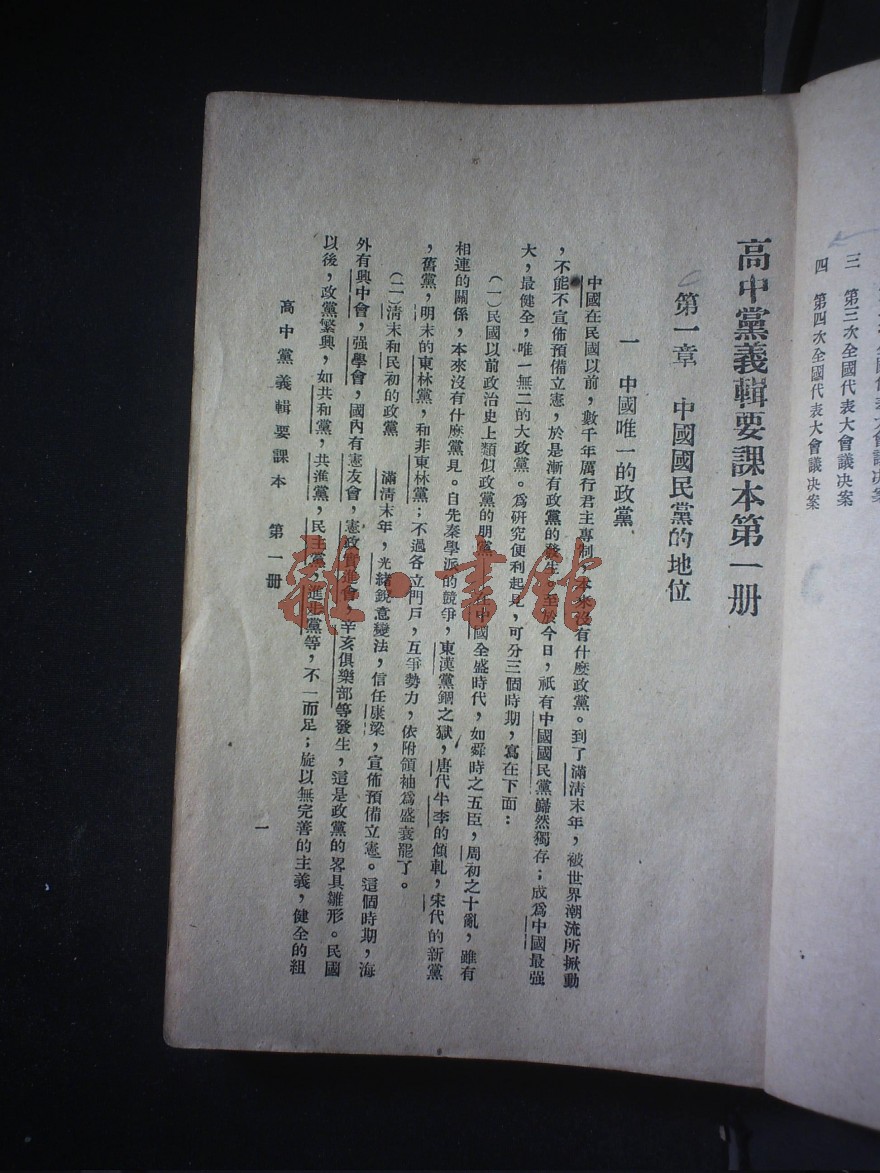 三 第三次全國代表大會議决案
四 第四次全國代表大會議决案
高中黨義輯要課本第一册
第一章 中國國民黨的地位
一 中國唯一的政黨
中國在民國以前,數千年厲行君主專制,本來沒有什麽政黨。到了滿淸末年,被世界潮流所掀動
,不能不宣佈預備立憲,於是漸有政黨的發生,至於今日,祇有中國國民黨巋然獨存;成爲中國最强
大,最健全,唯一無二的大政黨。爲研究便利起見,可分三個時期,寫在下面:
(一)民國以前政治史上類似政黨的朋黨 在中國全盛時代,如舜時之五臣,周初之十亂,雖有
相連的關係,本來沒有什麽黨見。自先秦學派的競爭,東漢黨錮之獄,唐代牛李的傾軋,宋代的新黨
,舊黨,明末的東林黨,和非東林黨;不過各立門戶,互爭勢力,依附領袖爲盛衰罷了。
(二)淸末和民初的政黨 滿淸末年,光緒銳意變法,信任康梁,宣佈預備立憲。這個時期,海
外有興中會,强學會,國內有憲友會,憲政實進會,辛亥俱樂部等發生,這是政黨的畧具雛形。民國
以後,政黨繁興,如共和黨,共進黨,民主黨,進步黨等,不一而足;旋以無完善的主義,健全的組
高中黨義輯要課本 第一册
一
雜·書館